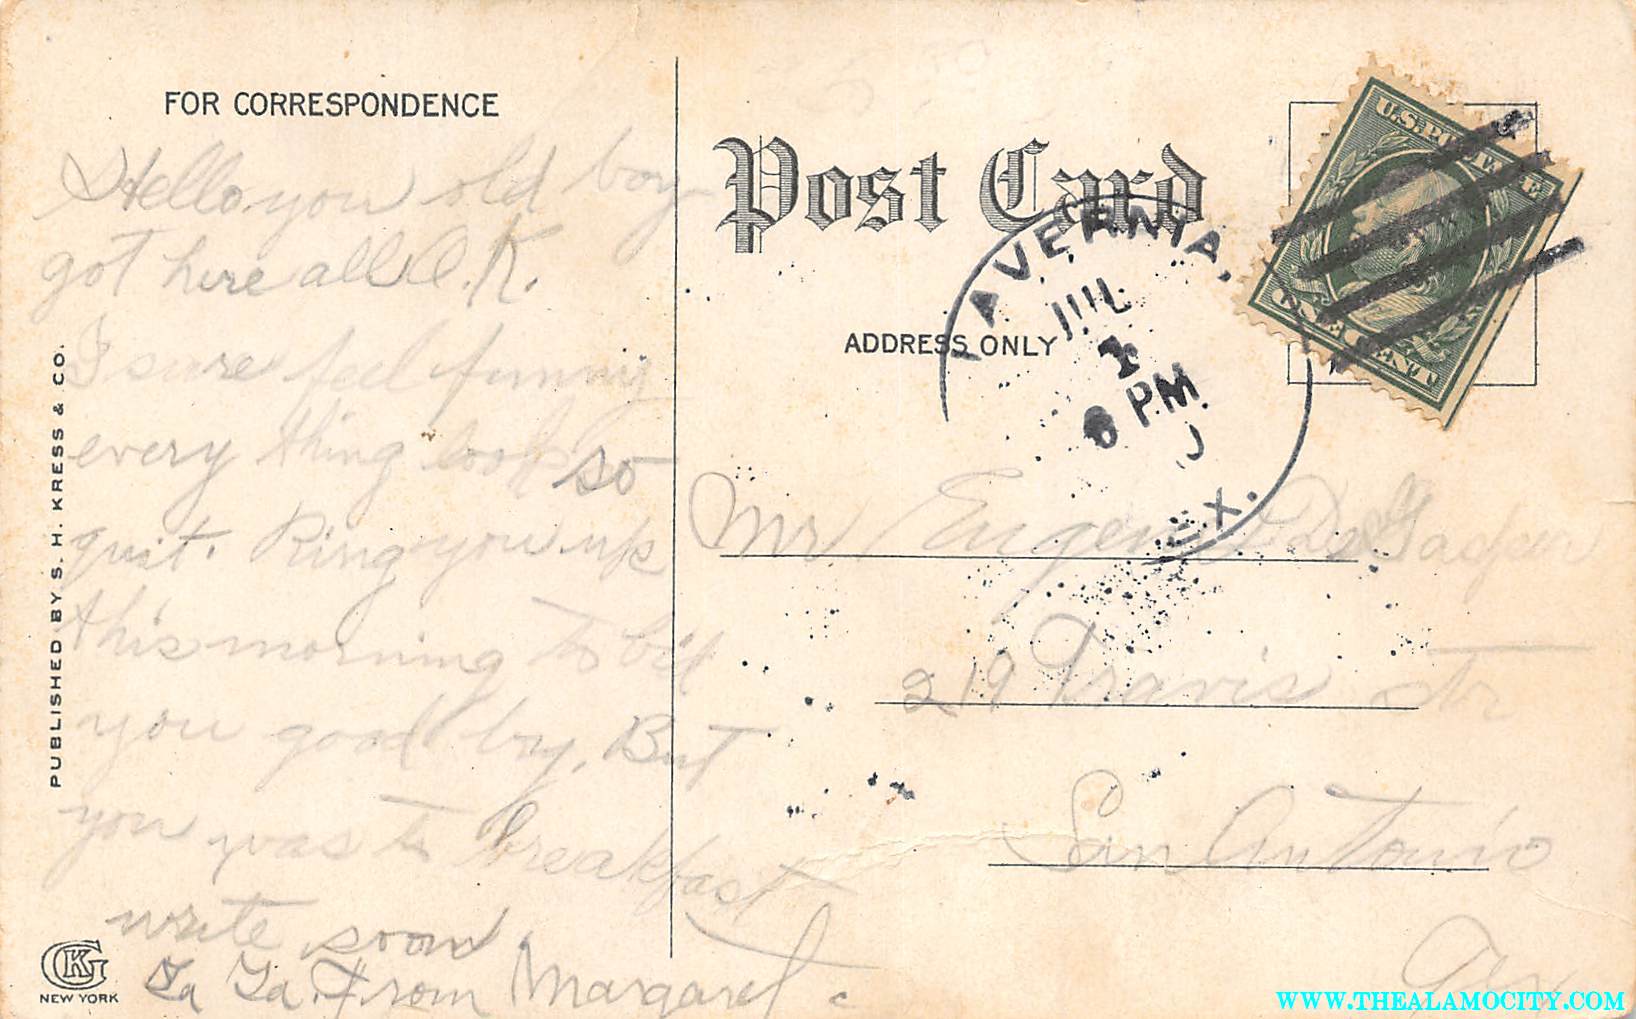 FOR CORRESPONDENCE
Hello you old boy
got here all O.K.
I sure feel funny
every thing look so
quit. Ring you up
this morning to bid
you good by, But
you was to breakfast
write soon.
Ta Ta. From Margaret
PUBLISHED BY S. H. KRESS & CO.
GK
NEW YORK
Post Card
ADDRESS ONLY
LAVERNIA,
JUL
6 PM
TEX.
U.S. POSTAGE
ONE CENT
Mr Eugene De
219 Travis str
San Antonio
Tex
WWW.THEALAMOCITY.COM